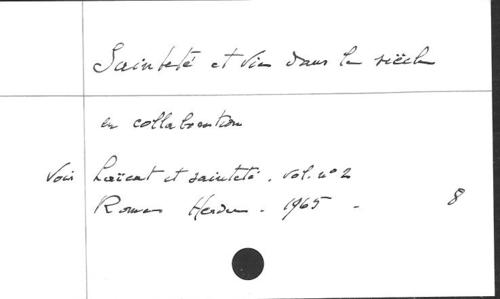 Sainteté et vie dans le siècle
en collaboration
Voir Laïcat et sainteté. vol. n° 2
Rome Herder. 1965 - 8